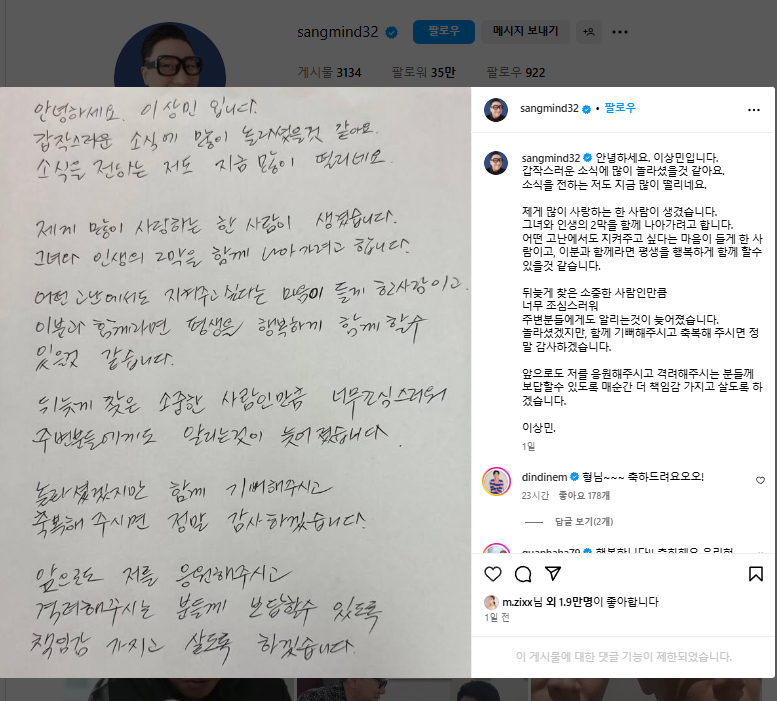 sangmind32
팔로우
메시지 보내기
게시물 3134
팔로워 35만
팔로우 922
안녕하세요. 이상민 입니다.
갑작스러운 소식에 많이 놀라셨을것 같아요.
소식을 전하는 저도 지금 많이 떨리네요.
제게 많이 사랑하는 한 사람이 생겼습니다.
그녀와 인생의 2막을 함께 나아가려고 합니다.
어떤 고난에서도 지켜주고 싶다는 마음이 들게 한사람이고.
이분과 함께라면 평생을 행복하게 함께 할수
있을것 같습니다.
뒤늦게 찾은 소중한 사람인만큼 너무조심스러워
주변분들에게도 알리는것이 늦어졌습니다.
놀라셨겠지만 함께 기뻐해주시고
축복해 주시면 정말 감사하겠습니다.
앞으로도 저를 응원해주시고
격려해주시는 분들께 보답할수 있도록
책임감 가지고 살도록 하겠습니다.
sangmind32 • 팔로우
sangmind32 안녕하세요. 이상민입니다.
갑작스러운 소식에 많이 놀라셨을것 같아요.
소식을 전하는 저도 지금 많이 떨리네요.
제게 많이 사랑하는 한 사람이 생겼습니다.
그녀와 인생의 2막을 함께 나아가려고 합니다.
어떤 고난에서도 지켜주고 싶다는 마음이 들게 한 사
람이고, 이분과 함께라면 평생을 행복하게 함께 할수
있을것 같습니다.
뒤늦게 찾은 소중한 사람인만큼
너무 조심스러워
주변분들에게도 알리는것이 늦어졌습니다.
놀라셨겠지만, 함께 기뻐해주시고 축복해 주시면 정
말 감사하겠습니다.
앞으로도 저를 응원해주시고 격려해주시는 분들께
보답할수 있도록 매순간 더 책임감 가지고 살도록 하
겠습니다.
이상민.
1일
dindinem 형님~~~ 축하드려요오오!
23시간 좋아요 178개
답글 보기(2개)
m.zixx님 외 1.9만명이 좋아합니다
1일 전
이 게시물에 대한 댓글 기능이 제한되었습니다.